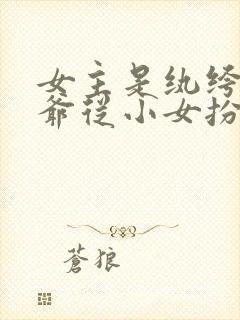 女主是纨绔
爷从小女扮
苍狼